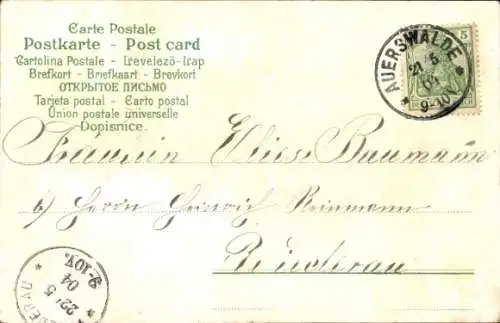 Carte Postale
Postkarte - Post card
Cartolina Postale - Levelező-Lap
Brefkort - Briefkaart - Brevkort
ОТКРЫТОЕ ПИСЬМО
Tarjeta postal - Carto postal
Union postale universelle
Dopisnice.
AUERSWALDE
21 5
04
* 9-10V *
5
Fräulein Eliese Baumann
b/ Herrn Heinrich Reinmann
9-10V.
22 5
04